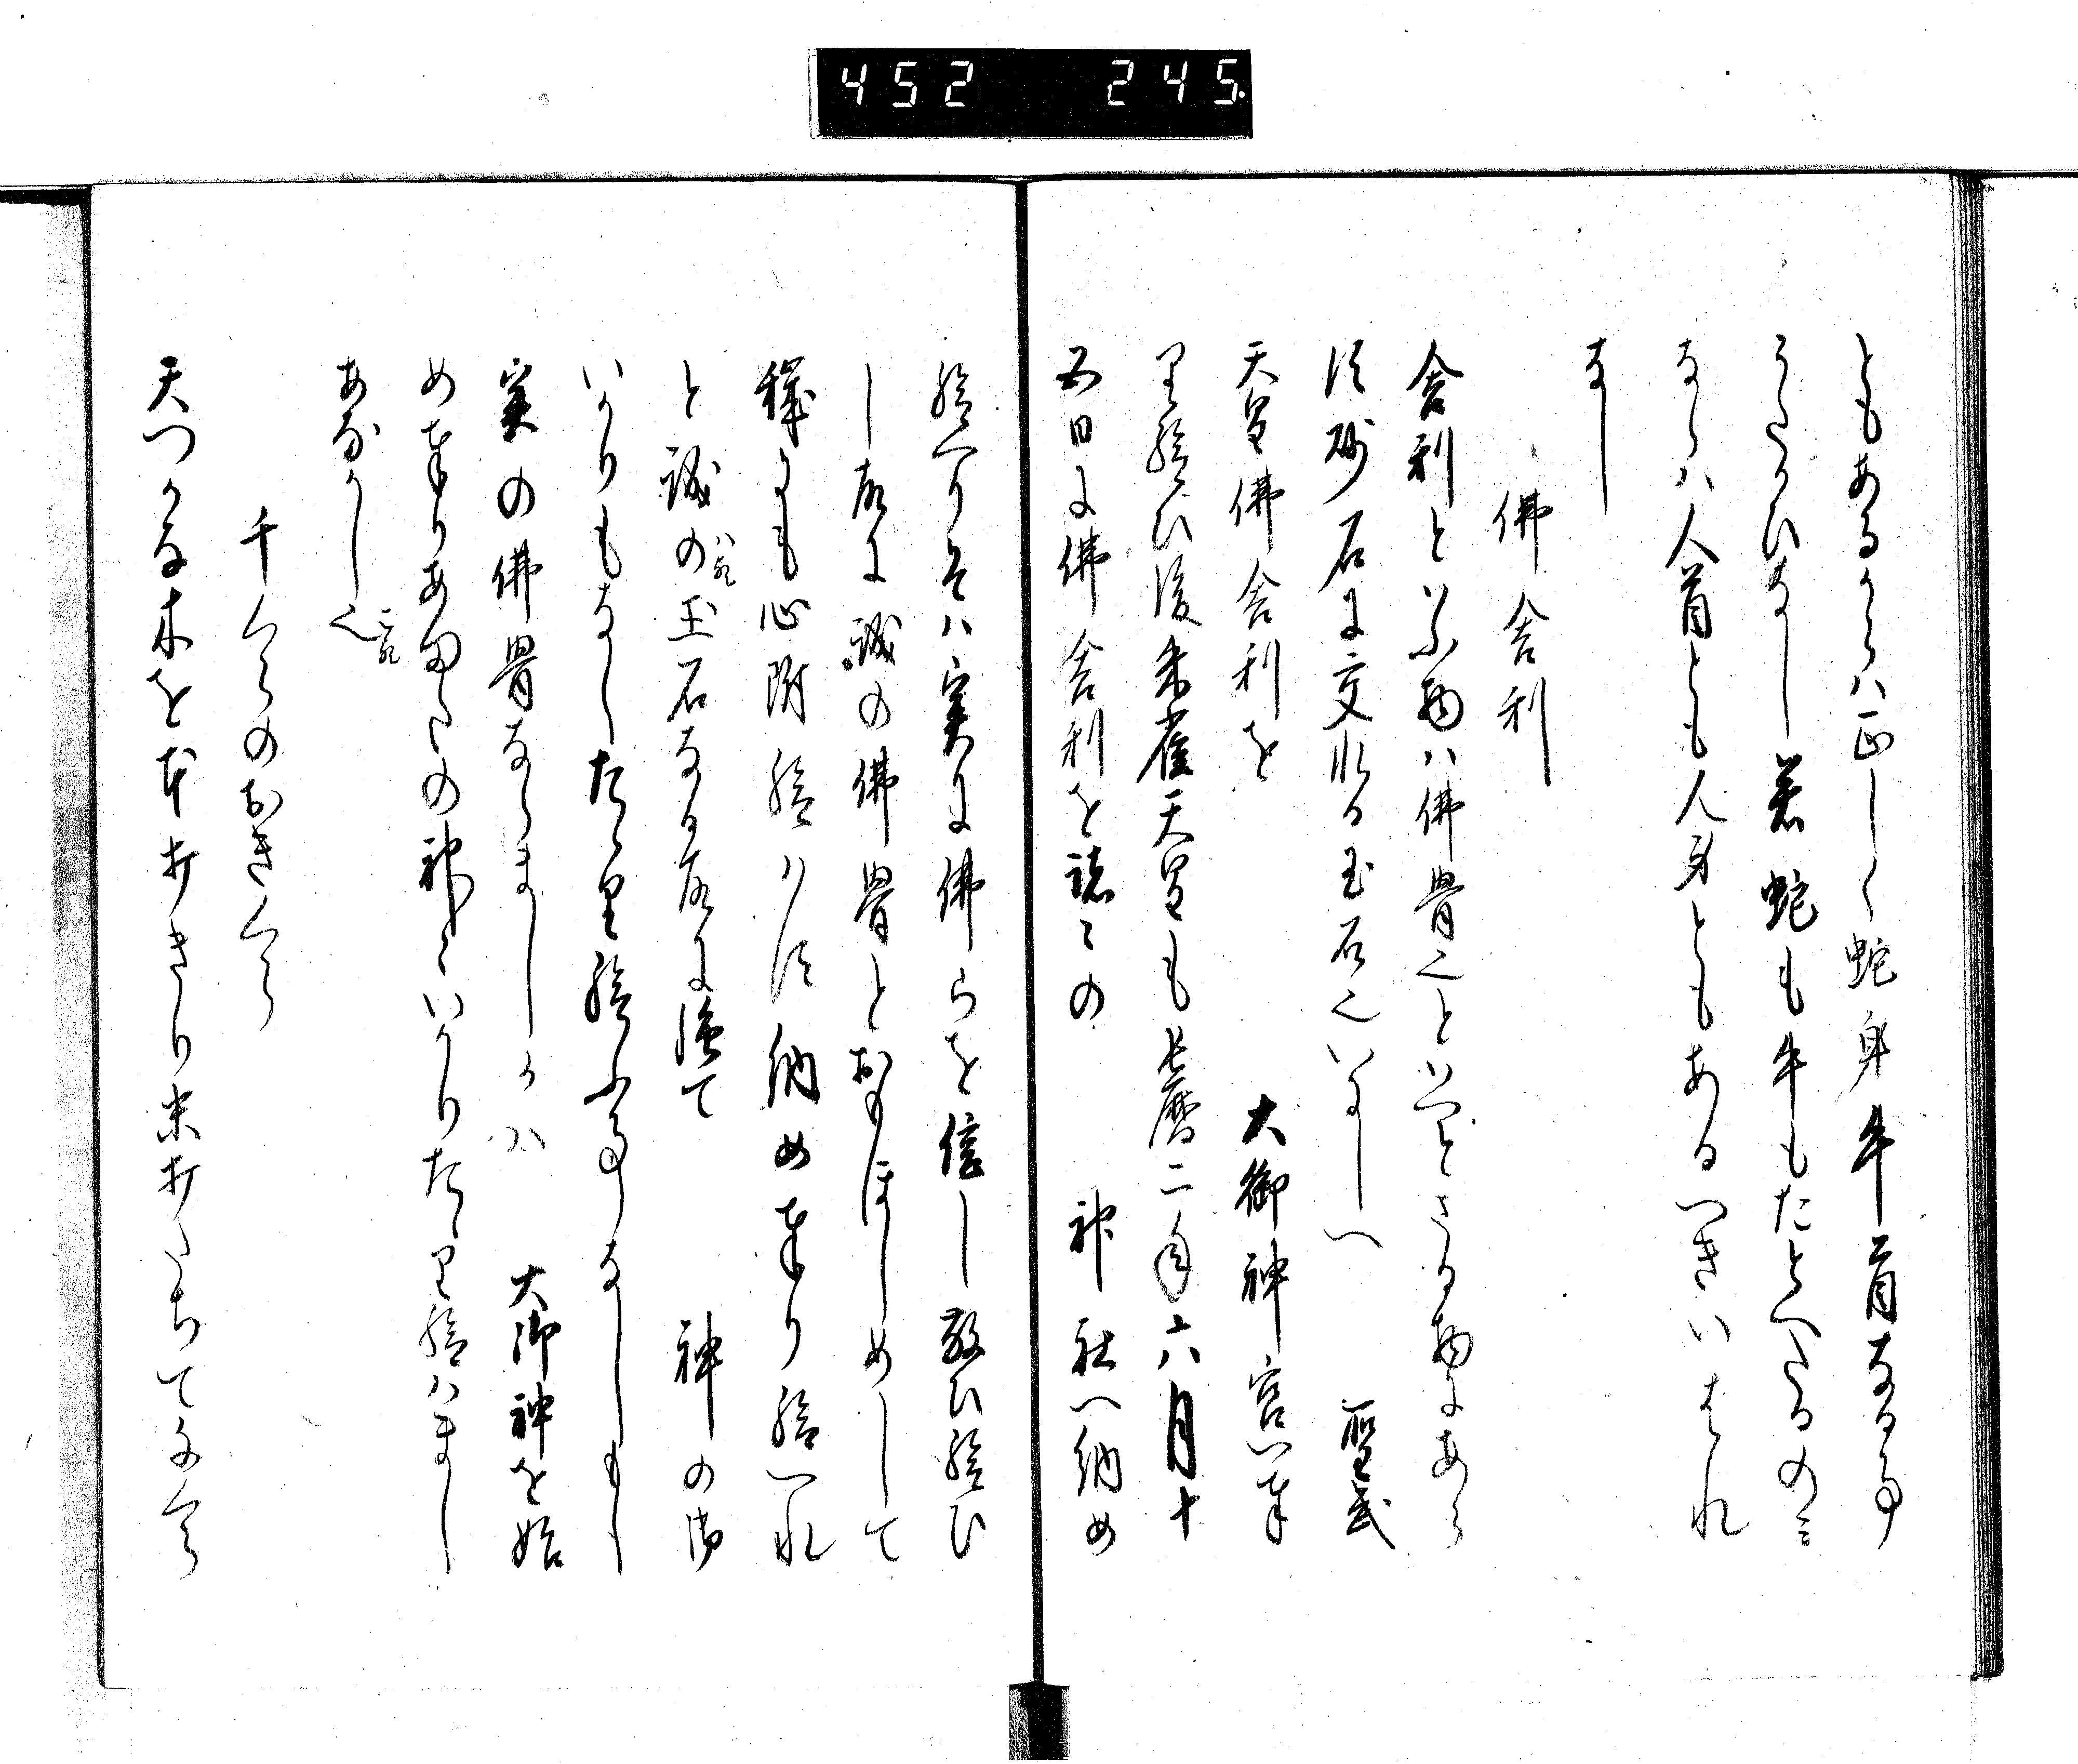 452 245
ともあるからハ正しく蛇身牛首なる事
うたかひなし若蛇も牛もたとへたるのミ
ならハ人首とも人身ともあるへきいはれ
なし
佛舎利
舎利といふ物ハ佛骨也といへとさる物にあら
す砂石に交れる玉石也いにしへ 聖武
天皇佛舎利を 大御神宮へ奉
里給ひ後朱雀天皇も長暦二年六月十
五日に佛舎利を諸々の 神社へ納め
給へりそハ実に佛らを信し敬ひ給ひ
し故に誠の佛骨とおもほしめして
穢にも心附給ハす納め奉り給へれ
と誠の玉石なる故に強て 神の御
いかりもなくたゝ里給ふ事なしもし
実の佛骨ならましかハ 大御神を始
め奉りあまたの神々いかりたゝり給ハまし
あなかしこ
千くらのおきくら
天つかな木を本打きり末打たちて千くら